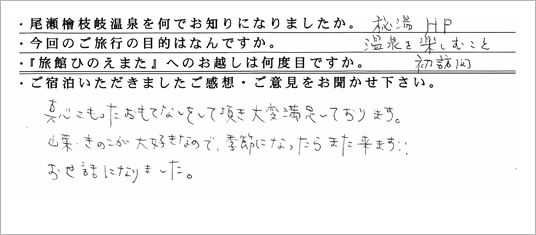 ・尾瀬檜枝岐温泉を何でお知りになりましたか。 秘湯HP
・今回のご旅行の目的はなんですか。 温泉を楽しむこと
・『旅館ひのえまた』へのお越しは何度目ですか。 初訪問
・ご宿泊いただきましたご感想・ご意見をお聞かせ下さい。
真心こもったおもてなしをして頂き大変満足しております。
山菜・きのこが大好きなので、季節になったらまた来ます!!
お世話になりました。